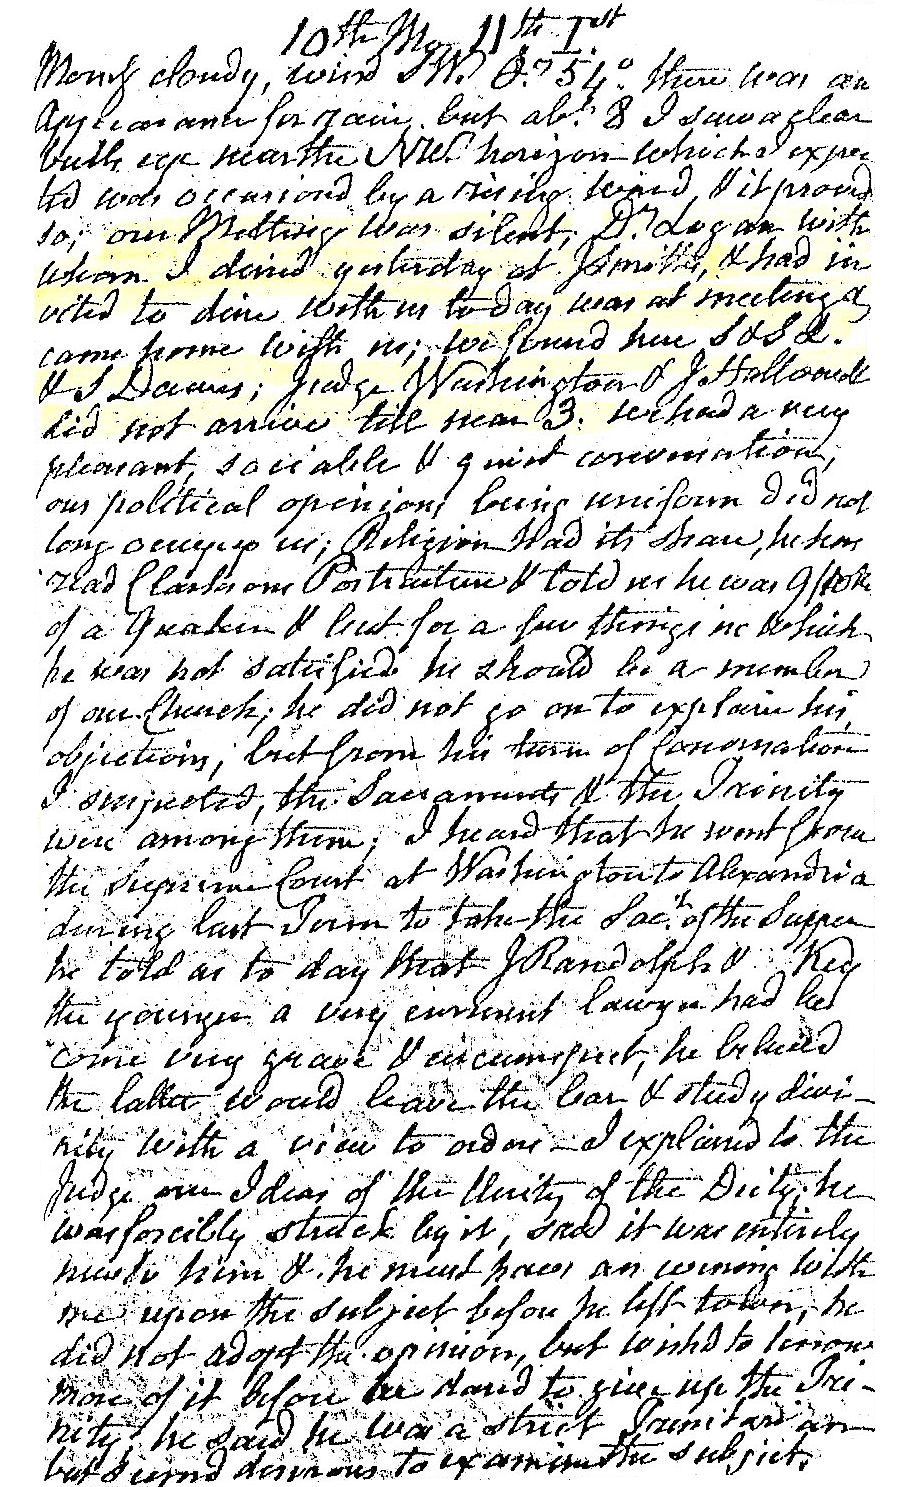 10th Mo. 11th 1st
Morng cloudy, wind SW. 54° there was an
appearance for rain, but abt. 8 I saw a clear
bulls eye near the NW. horizon which I expec
ted was occasiond by a rising wind, & it proved
so; our Meeting was silent, Dr. Logan with
whom I dined yesterday at J Smiths, & had in
vited to dine with us to day was at meeting &
came home with us; we found here S & S L.
& S Dawes; Judge Washington & J Hallowell
did not arrive till near 3. we had a very
pleasant, sociable & quiet conversation,
our political opinions being uniform did not
long occupy us; Religion had its share, he has
read Clarksons Portraiture & told us he was 9/10ths
of a Quaker & but for a few things in which
he was not satisfied he should be a member
of our Church; he did not go on to explain his
objections; but from his turn of Conversation
I suspected, the Sacraments & the Trinity
were among them; I heard that he went from
the Supreme Court at Washington to Alexandria
during last Term to take the Sact. of the Supper
he told us to day that J Randolph & Key
the younger a very eminent lawyer had be
come very grave & circumspect, he believed
the latter would leave the bar & study divi-
nity with a view to orders - I explained to the
Judge our Ideas of the Unity of the Deity, he
was forcibly struck by it, said it was entirely
new to him & he must have an evening with
me upon the subject before he left town, he
did not adopt the opinion, but wishd to know
more of it before he dared to give up the Tri-
nity, he said he was a strict Trinitarian
but seemd desirous to examine the subject.